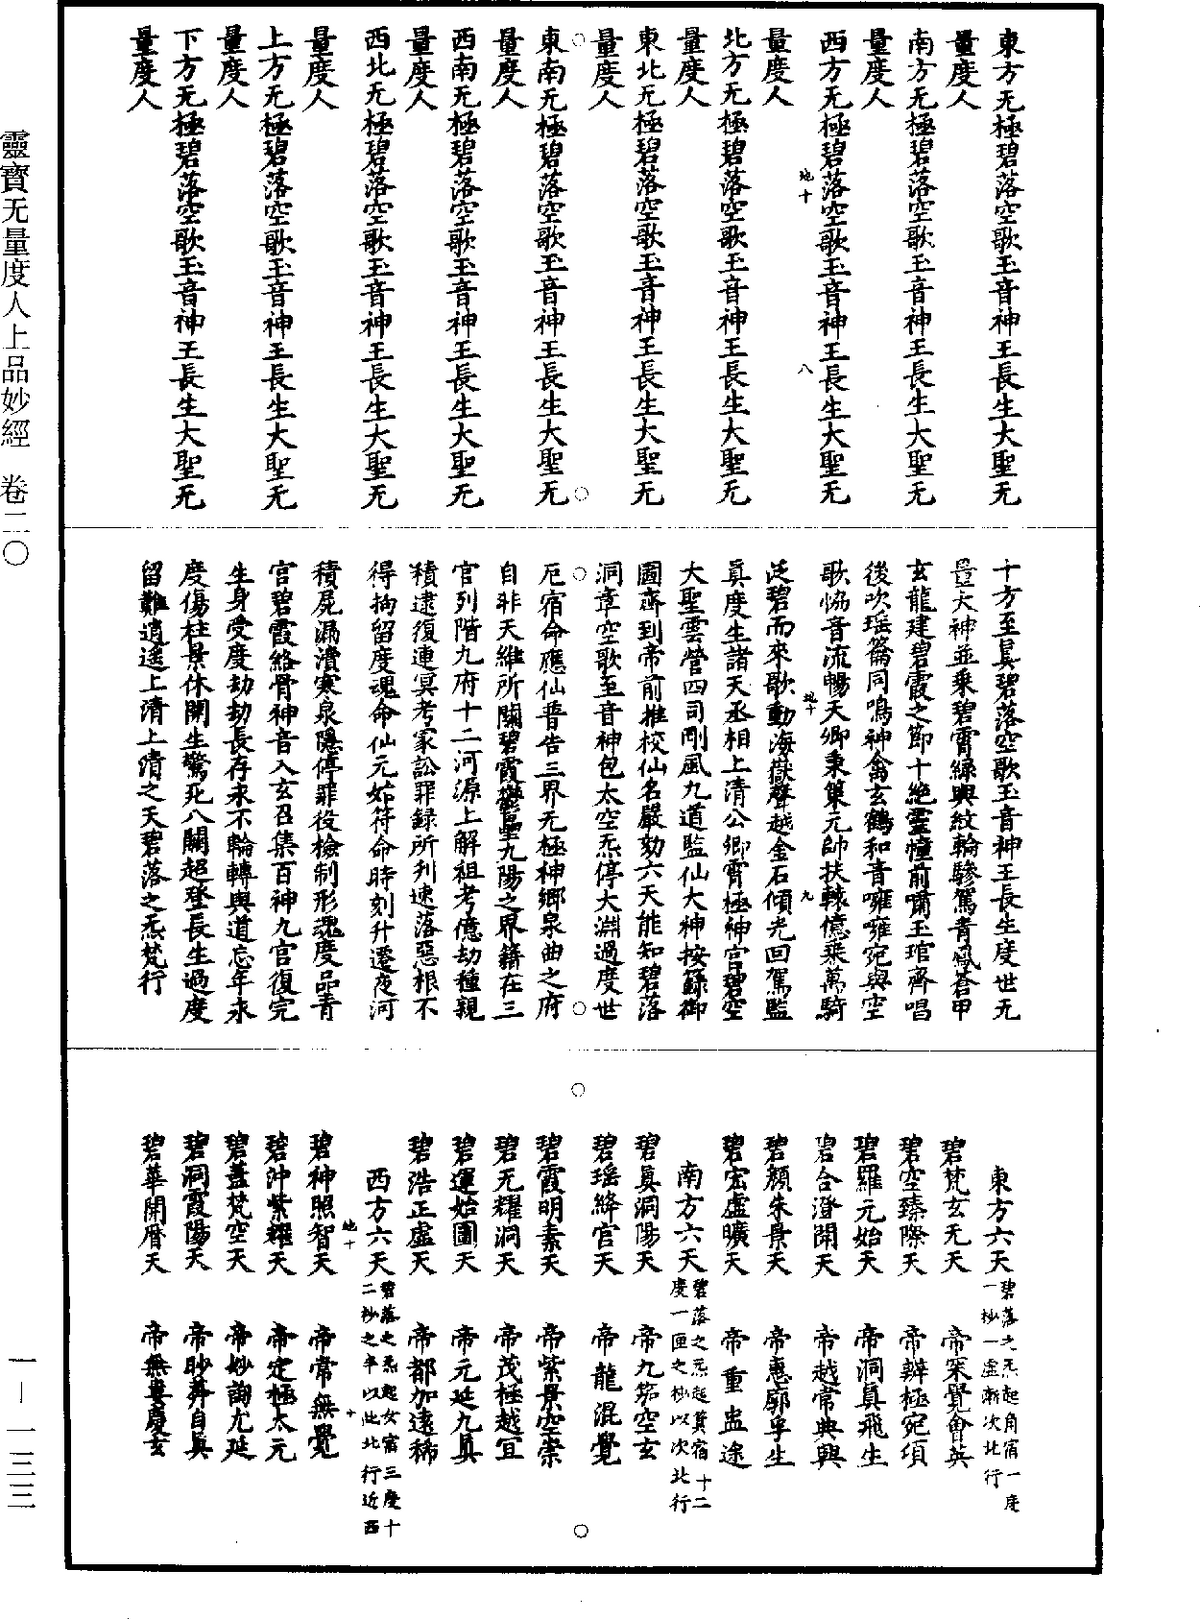 東方无極碧落空歌玉音神王長生大聖无
量度人
南方无極碧落空歌玉音神王長生大聖无
量度人
西方无極碧落空歌玉音神王長生大聖无
量度人
北方无極碧落空歌玉音神王長生大聖无
量度人
東北无極碧落空歌玉音神王長生大聖无
量度人
東南无極碧落空歌玉音神王長生大聖无
量度人
西南无極碧落空歌玉音神王長生大聖无
量度人
西北无極碧落空歌玉音神王長生大聖无
量度人
上方无極碧落空歌玉音神王長生大聖无
量度人
下方无極碧落空歌玉音神王長生大聖无
量度人
十方至真碧落空歌玉音神王長生度世无
量大神並乘碧霄綠輿紋輪驂駕青鳳蒼甲
玄龍建碧霞之節十絕靈幢前嘯玉琯齊唱
後吹瑤籥同鳴神禽玄鶴和音嗈嗈宛與空
歌恊音流暢天卿秉籙元帥扶轅億乘萬騎
泛碧而來歌動海嶽聲越金石傾光回駕監
真度生諸天丞相上清公卿霄極神宮碧空
大聖雲營四司剛風九道監仙大神按籙御
圖齊到帝前推校仙名嚴劾六天能知碧落
洞章空歌至音神包太空炁停大淵過度世
厄宿命應仙普告三界无極神鄉泉曲之府
自非天維所關碧霞鬱聖九陽之界籍在三
官列階九府十二河源上解祖考億劫種親
積逮復連冥考冢訟罪録所列速落惡根不
得拘留度魂命仙元始符命時刻升遷
積屍漏瀆寒泉隱停罪役檢制形魂度品青
宮碧霞絡骨神音入玄召集百神九宮復完
生身受度劫劫長存永不輪轉與道忘年永
度傷柱景休開生驚死八關超登長生過度
留難逍遙上清上清之天碧落之炁梵行
東方六天碧落之炁起角宿一度一杪一虛漸次北行
碧梵玄无天 帝寀覺會英
碧空臻際天 帝辨極宛項
碧羅元始天 帝洞真飛生
碧合澄開天 帝越常典興
碧顏朱景天 帝惠廓孚生
碧宏虛曠天 帝重盅途
南方六天碧落之炁起箕宿十二度一匝之杪以次北行
碧真洞陽天 帝九笳空玄
碧瑤絳宮天 帝龍混覺
碧霞明素天 帝紫景空崇
碧无耀洞天 帝茂極越宜
碧運始圖天 帝元延九真
碧浩正虛天 帝都加遠稀
西方六天碧落之炁起女宿三度十二杪之半以此北行近西
碧神照智天 帝常無覺
碧沖紫耀天 帝定極太元
碧蓋梵空天 帝妙詢尤延
碧洞霞陽天 帝眇莽自真
碧華開曆天 帝無慶玄
地十
八
地十
九
地十
十
靈寶无量度人上品妙經 卷二〇
一—一三三